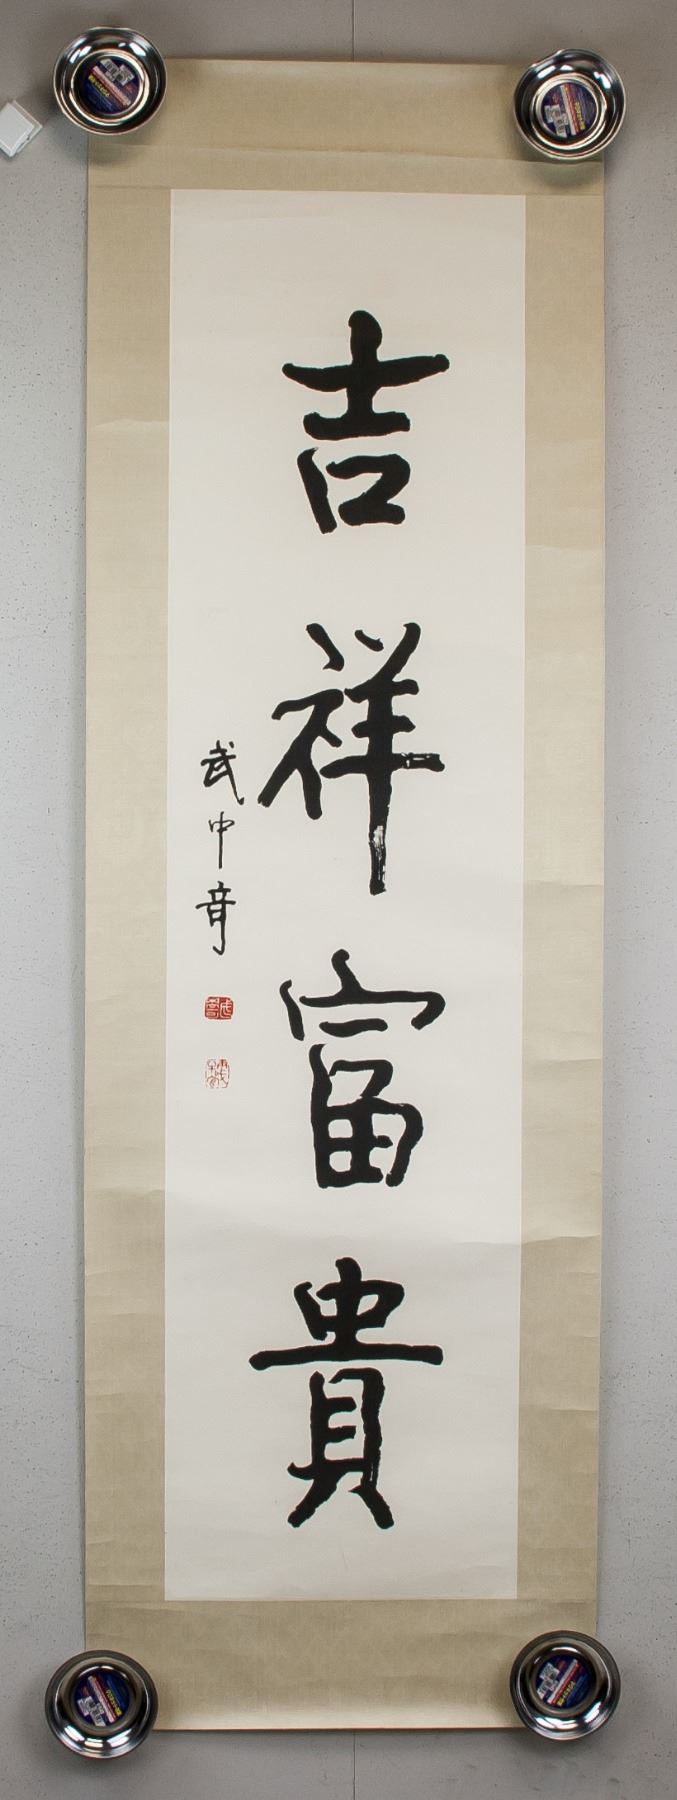 吉祥富貴
武中奇